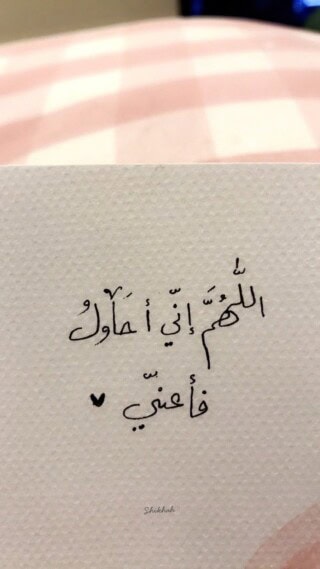 اللَّهُمَّ إنّي أحَاولُ
فأعنّي ♥
Shikhah